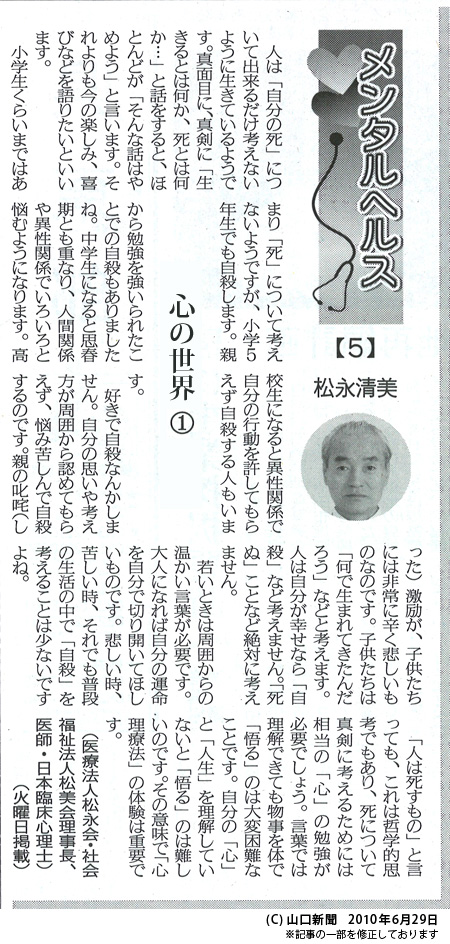 メンタルヘルス
【5】
松永清美
心の世界①
人は「自分の死」につ
いて出来るだけ考えない
ように生きているようで
す。真面目に、真剣に「生
きるとは何か、死とは何
か…」と話をすると、ほ
とんどが「そんな話はや
めよう」と言います。そ
れよりも今の楽しみ、喜
びなどを語りたいといい
ます。
小学生くらいまではあ
まり「死」について考え
ないようですが、小学5
年生でも自殺します。親
から勉強を強いられたこ
とでの自殺もありました
ね。中学生になると思春
期とも重なり、人間関係
や異性関係でいろいろと
悩むようになります。高
校生になると異性関係で
自分の行動を許してもら
えず自殺する人もいま
す。
好きで自殺なんかしま
せん。自分の思いや考え
方が周囲から認めてもら
えず、悩み苦しんで自殺
するのです。親の叱咤(し
った)激励が、子供たち
には非常に辛く悲しいも
のなのです。子供たちは
「何で生まれてきたんだ
ろう」などと考えます。
人は自分が幸せなら「自
殺」など考えません。「死
ぬ」ことなど絶対に考え
ません。
若いときは周囲からの
温かい言葉が必要です。
大人になれば自分の運命
を自分で切り開いてほし
いものです。悲しい時、
苦しい時、それでも普段
の生活の中で「自殺」を
考えることは少ないです
よね。
「人は死すもの」と言
っても、これは哲学的思
考でもあり、死について
真剣に考えるためには
相当の「心」の勉強が
必要でしょう。言葉では
理解できても物事を体で
「悟る」のは大変困難な
ことです。自分の「心」
と「人生」を理解してい
ないと「悟る」のは難し
いのです。その意味で「心
理療法」の体験は重要で
す。
(医療法人松永会・社会
福祉法人松美会理事長、
医師・日本臨床心理士)
(火曜日掲載)
(C) 山口新聞 2010年6月29日
※記事の一部を修正しております